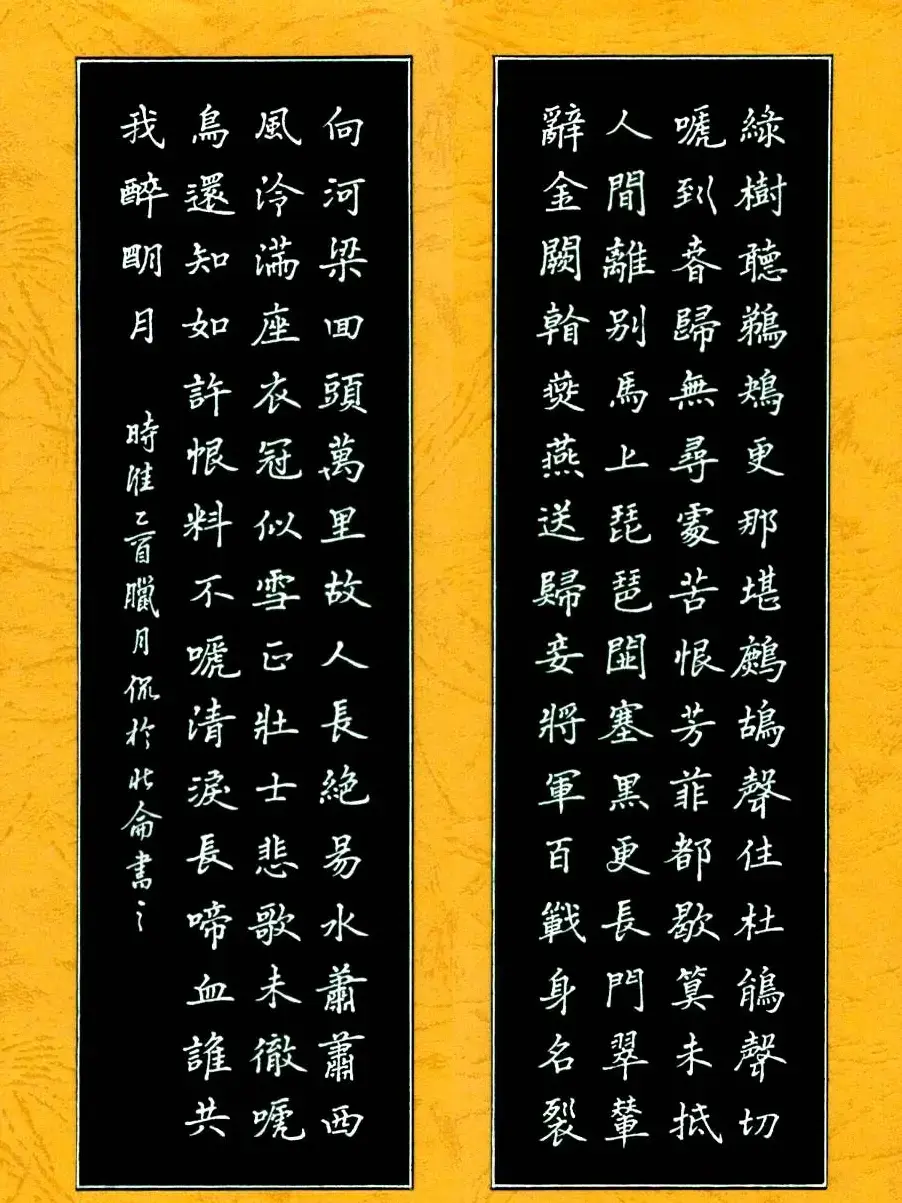 綠樹聽鵜鴂更那堪鷓鴣聲住杜鵑聲切
嗁到春歸無尋處苦恨芳菲都歇算未抵
人間離別馬上琵琶關塞黑更長門翠輦
辭金闕看燕燕送歸妾將軍百戰身名裂
向河梁回頭萬里故人長絕易水蕭蕭西
風冷滿座衣冠似雪正壯士悲歌未徹嗁
鳥還知如許恨料不嗁清淚長啼血誰共
我醉明月
時乙酉臘月侃於北侖書之